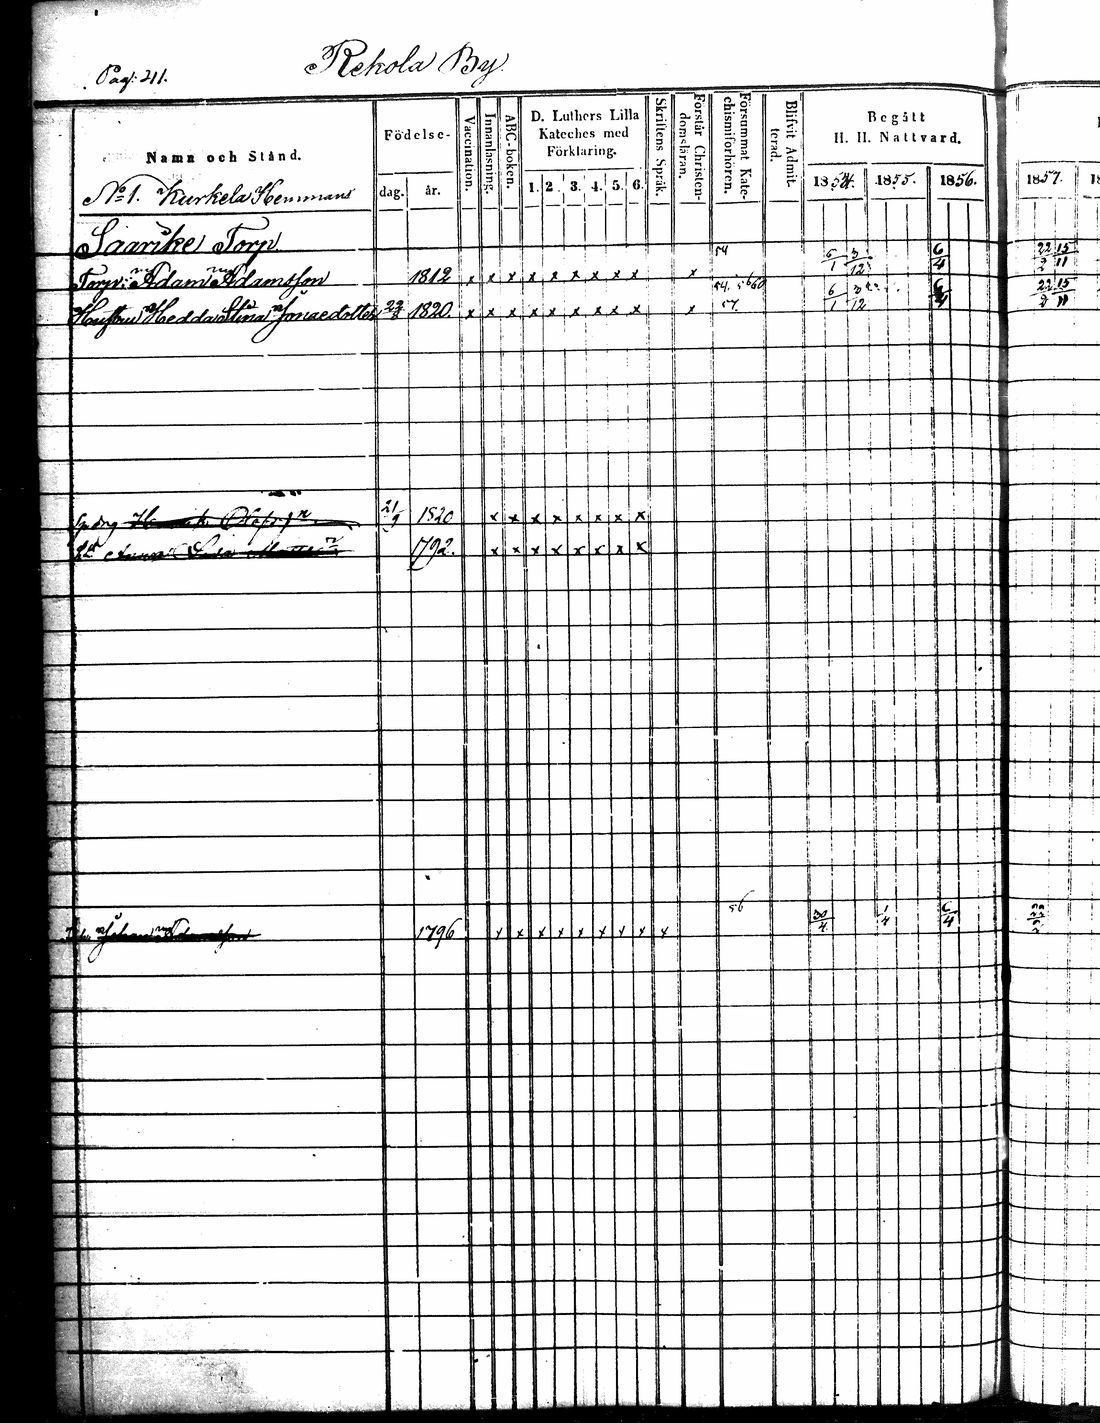 Pag: 211.
Rekola By.
Namn och Stånd.
Födelse-
dag. år.
Vaccination.
Innanläsning.
ABC-boken.
D. Luthers Lilla
Kateches med
Förklaring.
1. 2. 3. 4. 5. 6.
Skriftens Språk.
Förstår Christen-
domsläran.
Försummat Kate-
chismiförhören.
Blifvit Admit-
terad.
Begått
H. H. Nattvard.
1854. 1855. 1856. 1857.
No 1. Kurkela Hemmans
Saarike Torp
Torp: Adam Adamsson 1812 x x x x x x x x x x 54 6/1 3/12 6/4 22/2 15/11
Hustru Hedda Stina Jonaedotter 22/8 1820. x x x x x x x x x x 54. 56 60 57. 6/1 3/12 6/4 22/2 15/11
21/9 1820 x x x x x x x x
Anna Matts 1792. x x x x x x x x
Johan Adamsson 1796 x x x x x x x x x 56 30/4 1/4 6/4